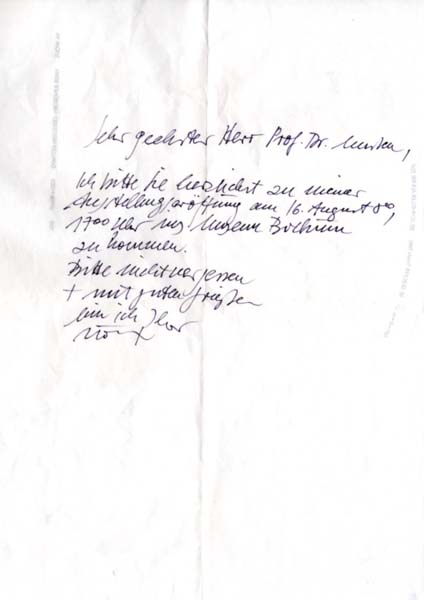 Sehr geehrter Herr Prof. Dr.
Ich bitte Sie herzlichst zu meiner
Ausstellungseröffnung am 16. August
1700 Uhr ins Museum Bochum
zu kommen.
Bitte nicht vergessen
+ mit guten Grüßen
bin ich Ihr